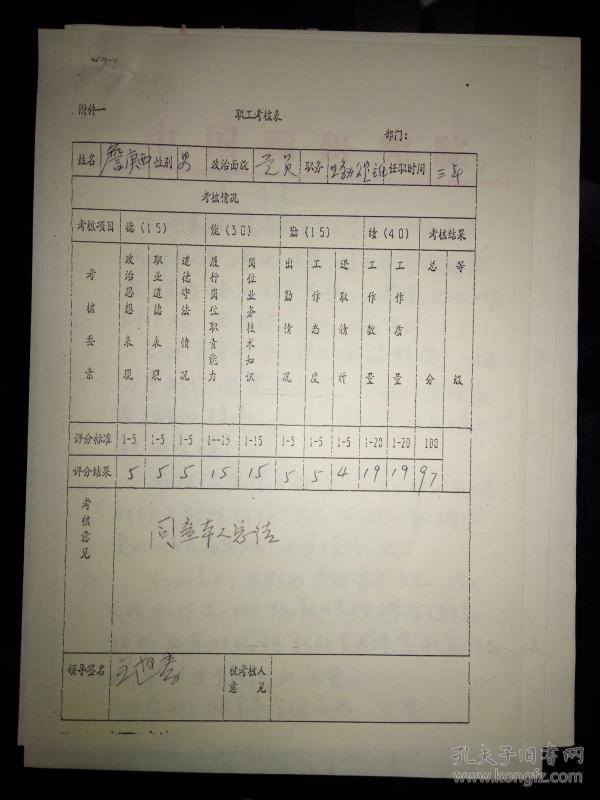 附件一
职工考核表
部门：
姓名 詹庚西 性别 男 政治面貌 党员 职务 任职时间 三年
考核情况
考核项目 德(15) 能(30) 勤(15) 绩(40) 考核结果
考核要素 政治思想表现 职业道德表现 道德守法情况 履行岗位职责能力 岗位业务技术知识 出勤情况 工作态度 进取精神 工作数量 工作质量 总分 等级
评分标准 1-5 1-5 1-5 1--15 1-15 1-5 1-5 1-5 1-20 1-20 100
评分结果 5 5 5 15 15 5 5 4 19 19 97
考核意见
同意本人总结
领导签名 被考核人意见
孔夫子旧书网
kongfz.com